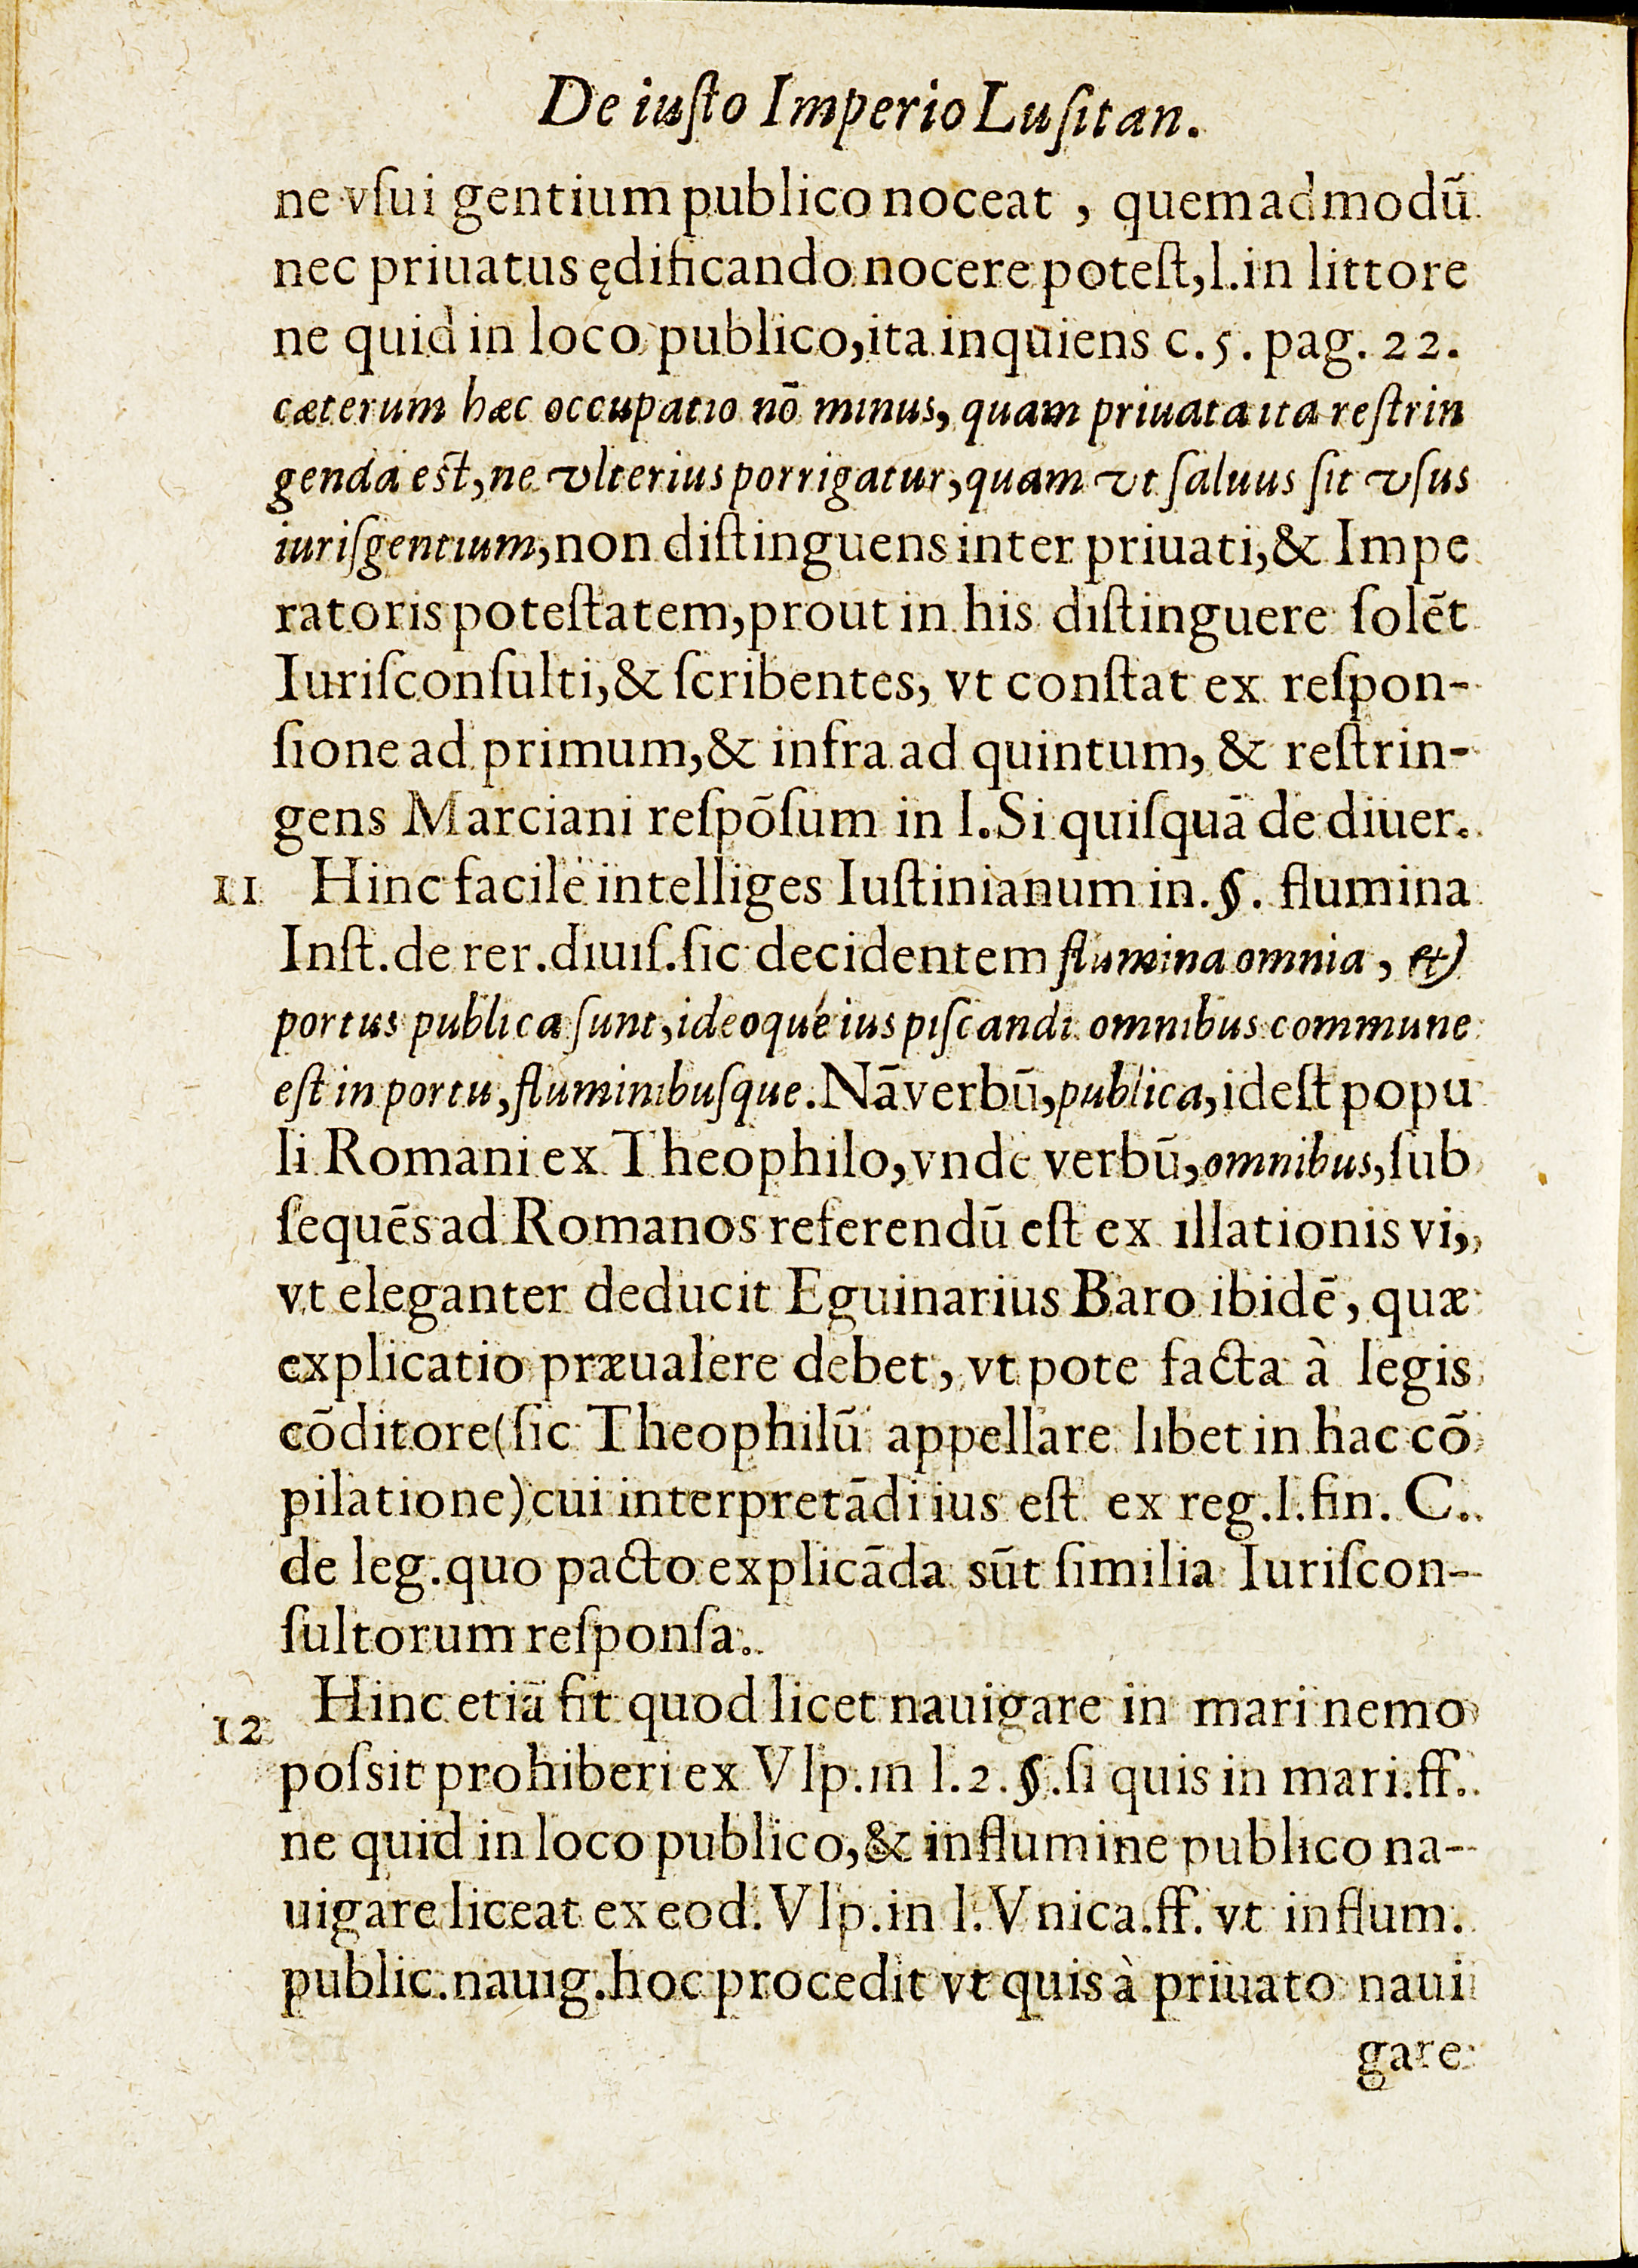 De iuſto Imperio Luſitan.
ne vſui gentium publico noceat , quemadmodū
nec priuatus ędificando nocere poteſt,l.in littore
ne quid in loco publico,ita inquiens c.5. pag. 22.
cæterum hæc occupatio nō minus, quam priuata ita reſtrin
genda eſt,ne vlterius porrigatur,quam vt ſaluus ſit vſus
iuriſgentium,non diſtinguens inter priuati,& Impe
ratoris poteſtatem,prout in his diſtinguere ſolēt
Iuriſconſulti,& ſcribentes, vt conſtat ex reſpon-
ſione ad primum,& infra ad quintum, & reſtrin-
gens Marciani reſpōſum in l.Si quiſquā de diuer.
11 Hinc facilè intelliges Iuſtinianum in.§. flumina
Inſt.de rer.diuiſ.ſic decidentem flumina omnia , &
portus publica ſunt,ideoqué ius piſcandi omnibus commune
eſt in portu,fluminibuſque.Nā verbū,publica,ideſt popu
li Romani ex Theophilo,vnde verbū,omnibus,ſub
ſequēs ad Romanos referendū eſt ex illationis vi,
vt eleganter deducit Eguinarius Baro ibidē, quæ
explicatio præualere debet, vt pote facta à legis
cōditore(ſic Theophilū appellare libet in hac cō
pilatione)cui interpretādi ius eſt ex reg.l.fin. C.
de leg.quo pacto explicāda sūt ſimilia Iuriſcon-
ſultorum reſponſa.
12 Hinc etiā fit quod licet nauigare in mari nemo
poſsit prohiberi ex Vlp.in l.2.§.ſi quis in mari.ff.
ne quid in loco publico,& in flumine publico na-
uigare liceat ex eod. Vlp.in l. Vnica.ff. vt in flum.
public.nauig.hoc procedit vt quis à priuato naui
gare